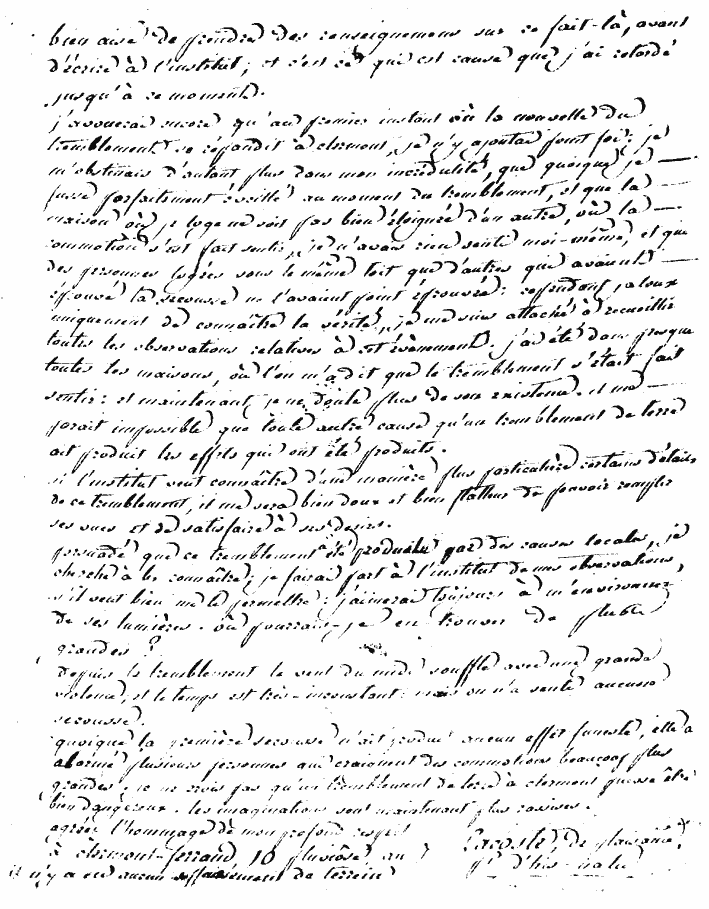 bien aise de prendre des renseignemens sur ce fait-là, avant
d'écrire à l'institut; et c'est ce qui est cause que j'ai retardé
jusqu'à ce moment.
j'avouerai encore qu'au premier instant où la nouvelle du
tremblement se répandit à clermont, je n'y ajoutai point foi; je
m'obstinais d'autant plus dans mon incrédulité, que quoique je
fusse parfaitement éveillé au moment du tremblement, et que la
maison où je loge ne soit pas bien éloignée d'un autre, où la
commotion s'est fait sentir, je n'avais rien senti moi-même, et que
des personnes logées sous le même toit que d'autres qui avaient
éprouvé la secousse ne l'avaient point éprouvée: cependant, jaloux
uniquement de connaître la vérité, je me suis attaché à recueillir
toutes les observations relatives à cet évènement. j'ai été dans presque
toutes les maisons, où l'on m'a dit que le tremblement s'était fait
sentir: et maintenant, je ne doute plus de son existence. il me
parait impossible que toute autre cause qu'un tremblement de terre
ait produit les effets qui ont été produits.
si l'institut veut connaître d'une manière plus particulière certains détails
de ce tremblement, il me sera bien doux et bien flatteur de pouvoir remplir
ses vues et de satisfaire à ses desirs.
persuadé que ce tremblement été produit par des causes locales, je
cherche à les connaître; je ferai part à l'institut de mes observations,
s'il veut bien me le permettre: j'aimerai toujours à m'environner
de ses lumières. où pourrais-je en trouver de plus
grandes?
depuis le tremblement le vent du midi souffle avec une grande
violence, et le temps est très-inconstant: mais on n'a senti aucune
secousse.
quoique la première secousse n'ait produit aucun effet funeste, elle a
alarmé plusieurs personnes qui craignent des commotions beaucoup plus
grandes. je ne crois pas qu'un tremblement de terre à clermont puisse être
bien dangereux. les imaginations sont maintenant plus rassises.
agréez l'hommage de mon profond respect
à clermont-ferrand, 10 pluviôse, an 7
Lacoste, de plaisance,
pr. d'his-natu
il n'y a eu aucun affaissement de terrein